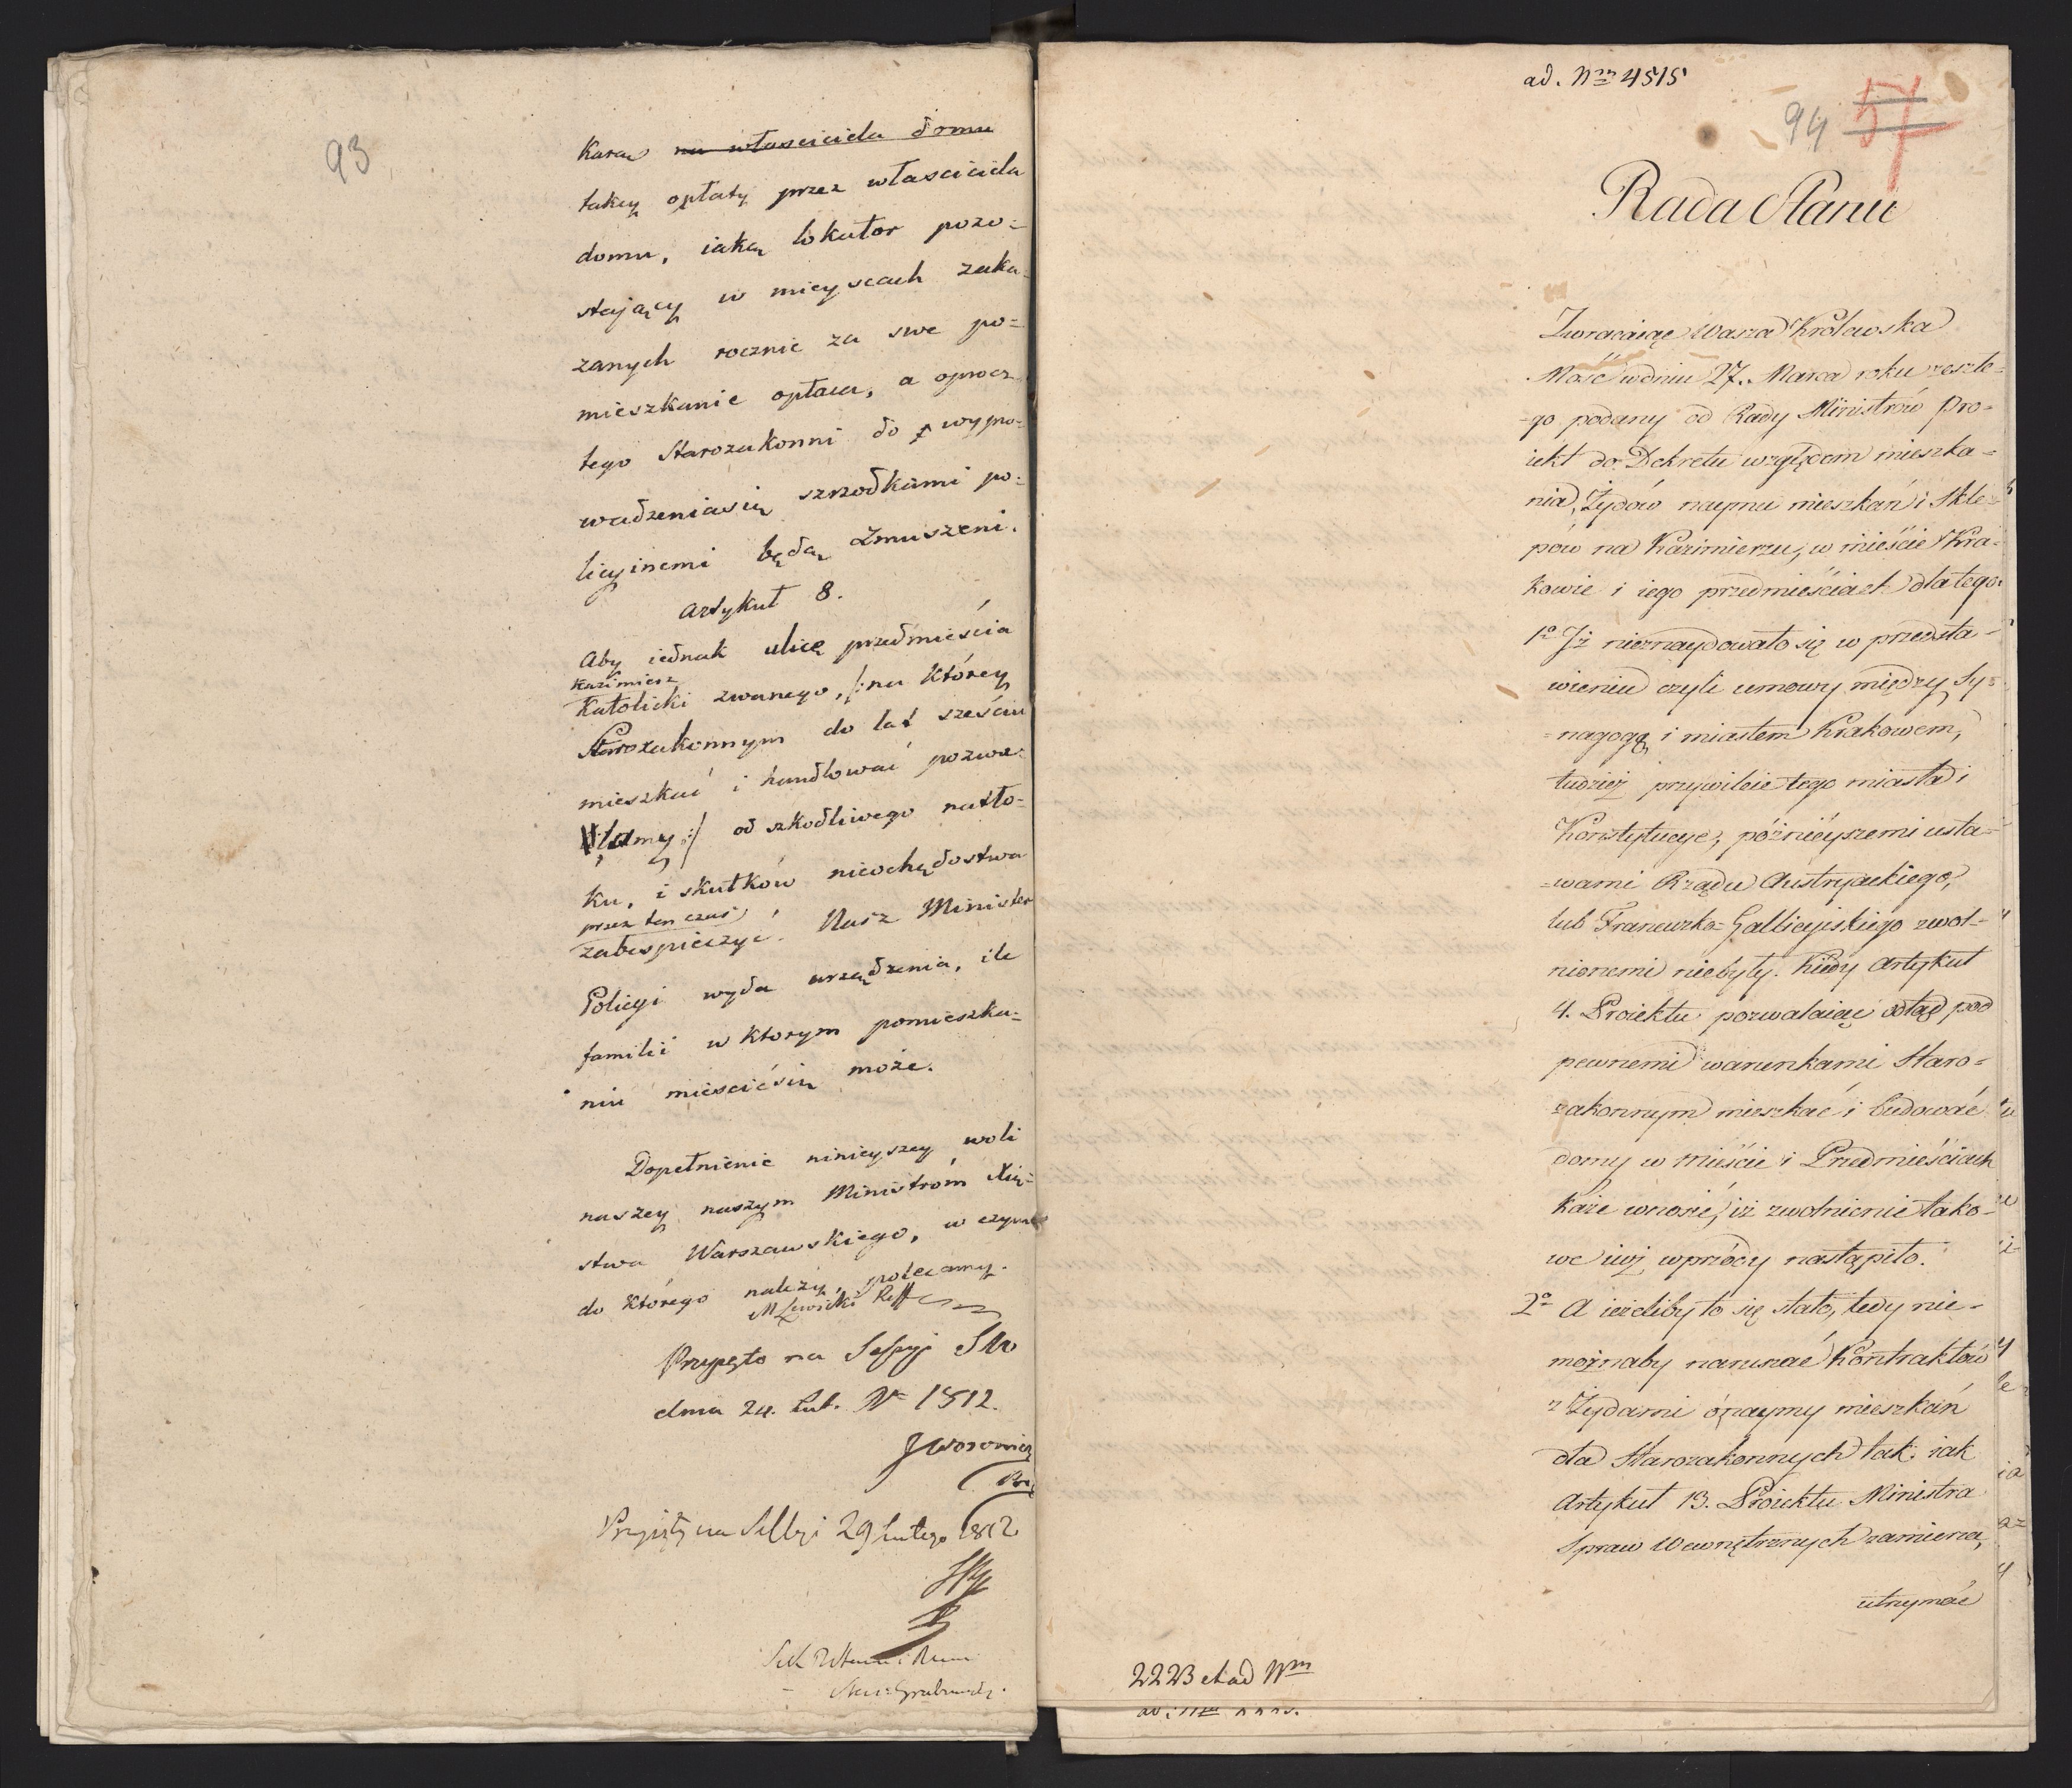 93
Karą na własciciela domu
takiey opłaty przez własciciela
domu, iaką lokator pozo=
staiący w mieyscach zaka=
zanych rocznie za swe po=
mieszkanie opłaca, a oprocz
tego Starozakonni do wypro=
wadzeniasię szrzodkami po=
licyinemi będą zmuszeni.
Artykuł 8.
Aby iednak ulicę przedmieścia
Kazimierz
Katolicki zwanego, /: na którey
Starozakonnym do lat sześciu
mieszkać i handlować pozwa=
lamy :/ od szkodliwego natło=
ku, i skutków nieochędostwa
przez ten czas
zabespieczyć. Nasz Minister
Policyi wyda urządzenia, ile
familii w ktorym pomieszka=
niu mieścićsię może.
Dopełnienie ninieyszey woli
naszey naszym Ministróm Xię=
stwa Warszawskiego, w czym
do którego należy, polecamy.
M Lewicki Reff
Przyjęto na Sessyi
dnia 24. Lut. 1812.
J Woronicz
Przyięty na Sessyi 29 Lutego 1812
ad. Nrm 4515
94 57
Rada Stanu
Zwracaiąc Wasza Królewska
Mość w dniu 27. Marca roku zeszłe=
=go podany od Rady Ministrów Pro=
iekt do Dekretu względem mieszka=
nia, Żydów naymu mieszkań i Skle=
pów na Kazimierzu, w mieście Kra=
kowie i iego przedmieściach dlatego:
1º Iż nieznaydowało się w przedsta=
wieniu czyli umowy między Sy=
=nagogą i miastem Krakowem,
tudzież przywileie tego miasta i
Konstytucye, późnieyszemi usta=
=wami Rządu Austryackiego,
lub Francuzko=Gallicyiskiego zwol=
nionemi niebyły. Kiedy Artykuł
4. Proiektu pozwalaiąc odtąd pod
pewnemi warunkami Staro=
zakonnym mieszkać i budować
domy w Mieście i Przedmieściach
każe wnosić, iż zwolnienie tako=
we iuż wprzódy nastąpiło.
2º A ieżeliby to się stało, tedy nie=
możnaby naruszać Kontraktów
z Żydami o naymy mieszkań
dla Starozakonnych tak iak
Artykuł 13. Proiektu Ministra
Spraw Wewnętrznych zamierza,
utrzymać
2223 et ad Nrm